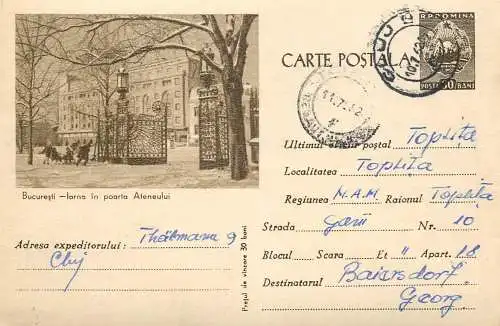 București – Iarna în poarta Ateneului
Adresa expeditorului : Thälmann 9
Cluj
Prețul de vînzare 30 bani
CARTE POSTALA
R.P. ROMINA
POSTA 30 BANI
CLUJ
Ultimul oficiu poștal Toplița
Localitatea Toplița
Regiunea M.A.M. Raionul Toplița
Strada Gării Nr. 10
Blocul Scara Et " Apart. 18
Destinatarul Baiersdorf
Georg